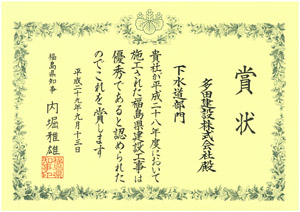 賞状
多田建設株式会社殿
下水道部門
貴社が平成二十八年度において
施工された福島県建設工事は
優秀であると認められた
のでこれを賞します
平成二十九年九月十三日
福島県知事 内堀雅雄